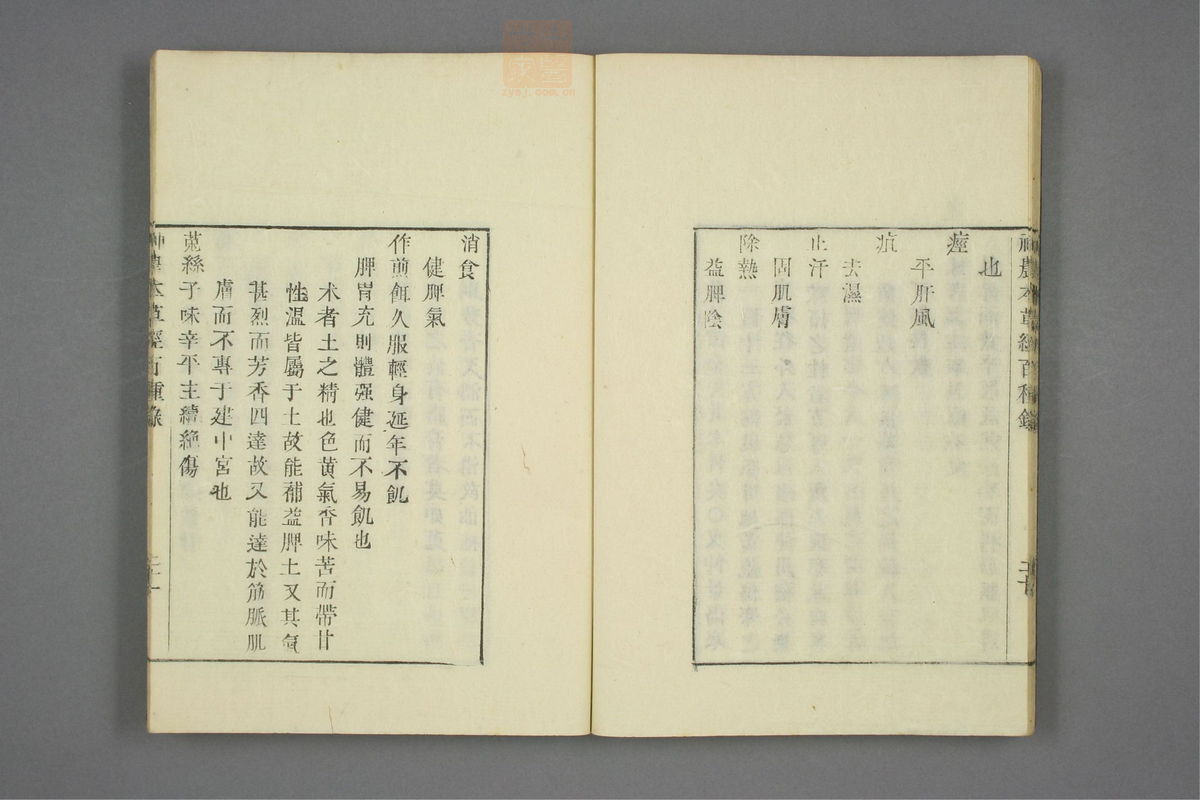 神農本草經百種錄
二十
也
痙
平肝風
疸
去濕
止汗
固肌膚
除熱
益脾陰
消食
健脾氣
作煎餌久服輕身延年不飢
脾胃充則體强健而不易飢也
术者土之精也色黃氣香味苦而帶甘
性溫皆屬于土故能補益脾土又其氣
甚烈而芳香四達故又能達於筋脈肌
膚而不專于建中宮也
菟絲子味辛平主續絕傷
神農本草經百種錄
zysj.com.cn